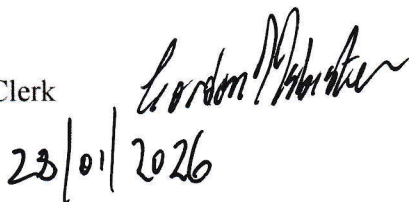 Clerk Gordon
23/01/2026